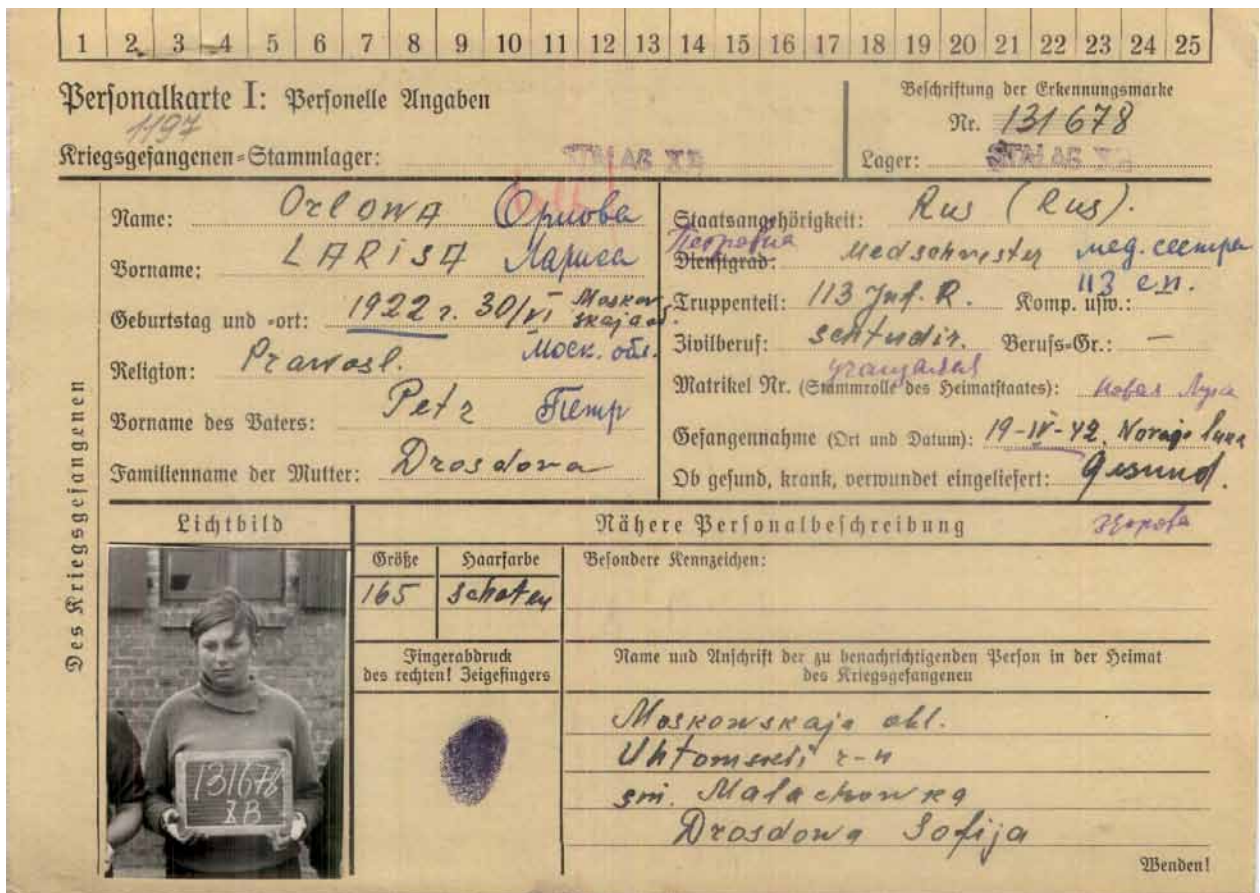 1 2 3 4 5 6 7 8 9 10 11 12 13 14 15 16 17 18 19 20 21 22 23 24 25
Personalkarte I: Personelle Angaben
Beschriftung der Erkennungsmarke
1197
Nr. 131678
Kriegsgefangenen=Stammlager: STALAG XB
Lager: STALAG XB
Des Kriegsgefangenen
Name: Orlowa Орлова
Vorname: LARISA Лариса
Geburtstag und =ort: 1922 г. 30/VI Moskowskaja o.
Моск. обл.
Religion: Prawosl.
Vorname des Vaters: Petr Петр
Familienname der Mutter: Drosdowa
Staatsangehörigkeit: Rus (Rus).
Петровна
Dienstgrad: Medschwester мед. сестра
113 с.п.
Truppenteil: 113 Inf. R. Komp. usw.:
Zivilberuf: schtudir. Berufs=Gr.: —
Matrikel Nr. (Stammrolle des Heimatstaates):
Gefangennahme (Ort und Datum): 19-IV-42,
Ob gesund, krank, verwundet eingeliefert: Gesund.
здорова
Lichtbild
Nähere Personalbeschreibung
Größe Haarfarbe
165 schaten
Besondere Kennzeichen:
Fingerabdruck
des rechten! Zeigefingers
Name und Anschrift der zu benachrichtigenden Person in der Heimat
des Kriegsgefangenen
Moskowskaja obl.
Uhtomskti r-n
Malachowka
Drosdowa Sofija
131678
XB
Wenden!